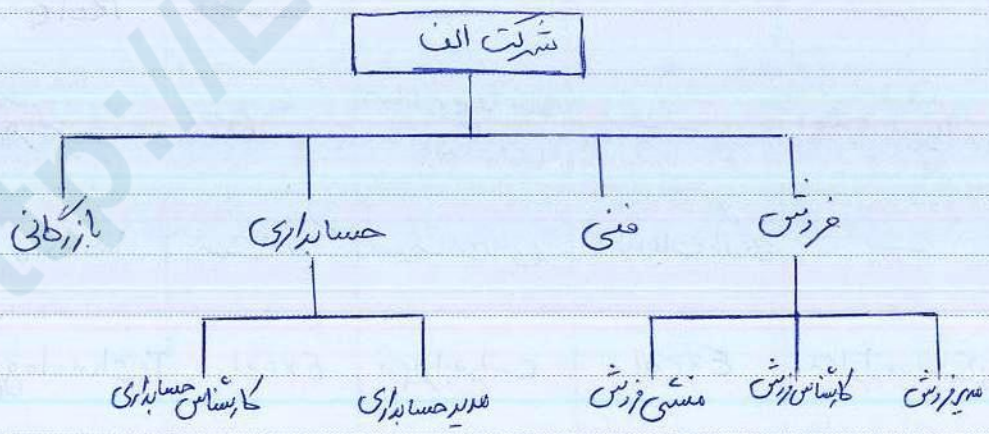 شرکت الف
فروش فنی حسابداری بازرگانی
مدیر فروش کارشناس فروش منشی فروش مدیر حسابداری کارشناس حسابداری